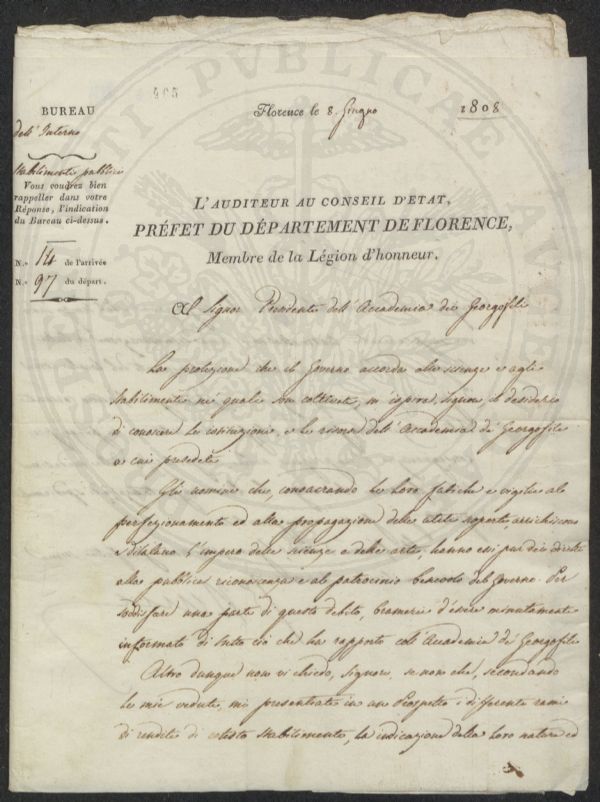 465
BUREAU
dell' Interno
Stabilimenti pubblici
Vous voudrez bien
rappeller dans votre
Réponse, l'indication
du Bureau ci-dessus.
N.° 14 de l'arrivée
N.° 97 du départ.
Florence le 8. Giugno 1808
L'AUDITEUR AU CONSEIL D'ETAT,
PRÉFET DU DÉPARTEMENT DE FLORENCE,
Membre de la Légion d'honneur.
Al Signor Presidente dell' Accademia dei Georgofili
La protezione che il Governo accorda alle scienze e agli
stabilimenti ne' quali son coltivate, m' ispira, Signore, il desiderio
di conoscere la costituzione, e le risorse dell' Accademia de' Georgofili
a cui presedete.
Gli uomini che, consacrando le loro fatiche e vigilie al
perfezionamento ed alla propagazione delle utili scoperte, arricchiscono
e dilatano l' impero delle scienze e delle arti, hanno dei diritti
alla pubblica riconoscenza e al patrocinio del Governo. Per
soddisfare una parte di questo debito, bramerei d' essere minutamente
informato di tutto ciò che ha rapporto coll' Accademia de' Georgofili
Altro dunque non vi chiedo, Signore, se non che, secondando
le mie vedute, mi presentiate in un Prospetto i differenti rami
di rendite di cotesto stabilimento, la indicazione della loro natura ed